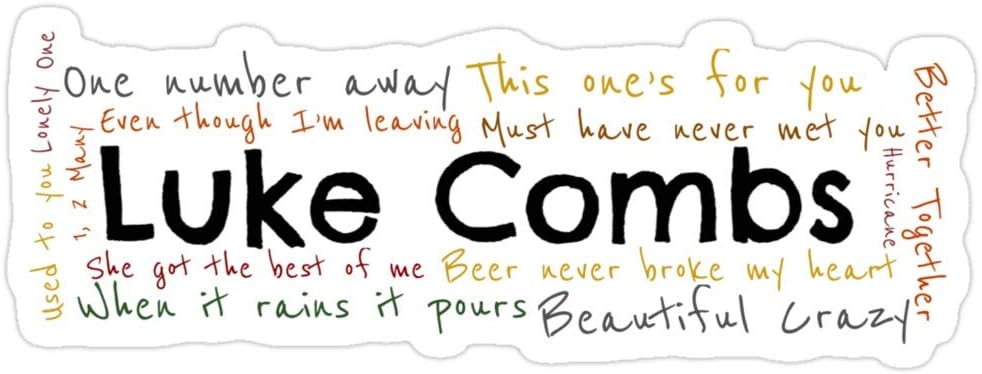 One number away This one's for you
Even though I'm leaving Must have never met you
Luke Combs
She got the best of me Beer never broke my heart
When it rains it pours Beautiful Crazy
Used to you Lonely One
1, 2 Many
Hurricane
Better Together